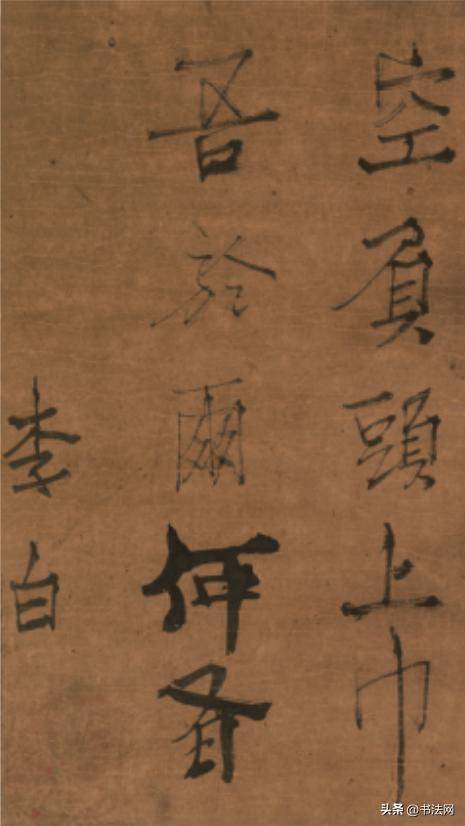 空負頭上巾
吾於爾何有
李白
头条 @书法网